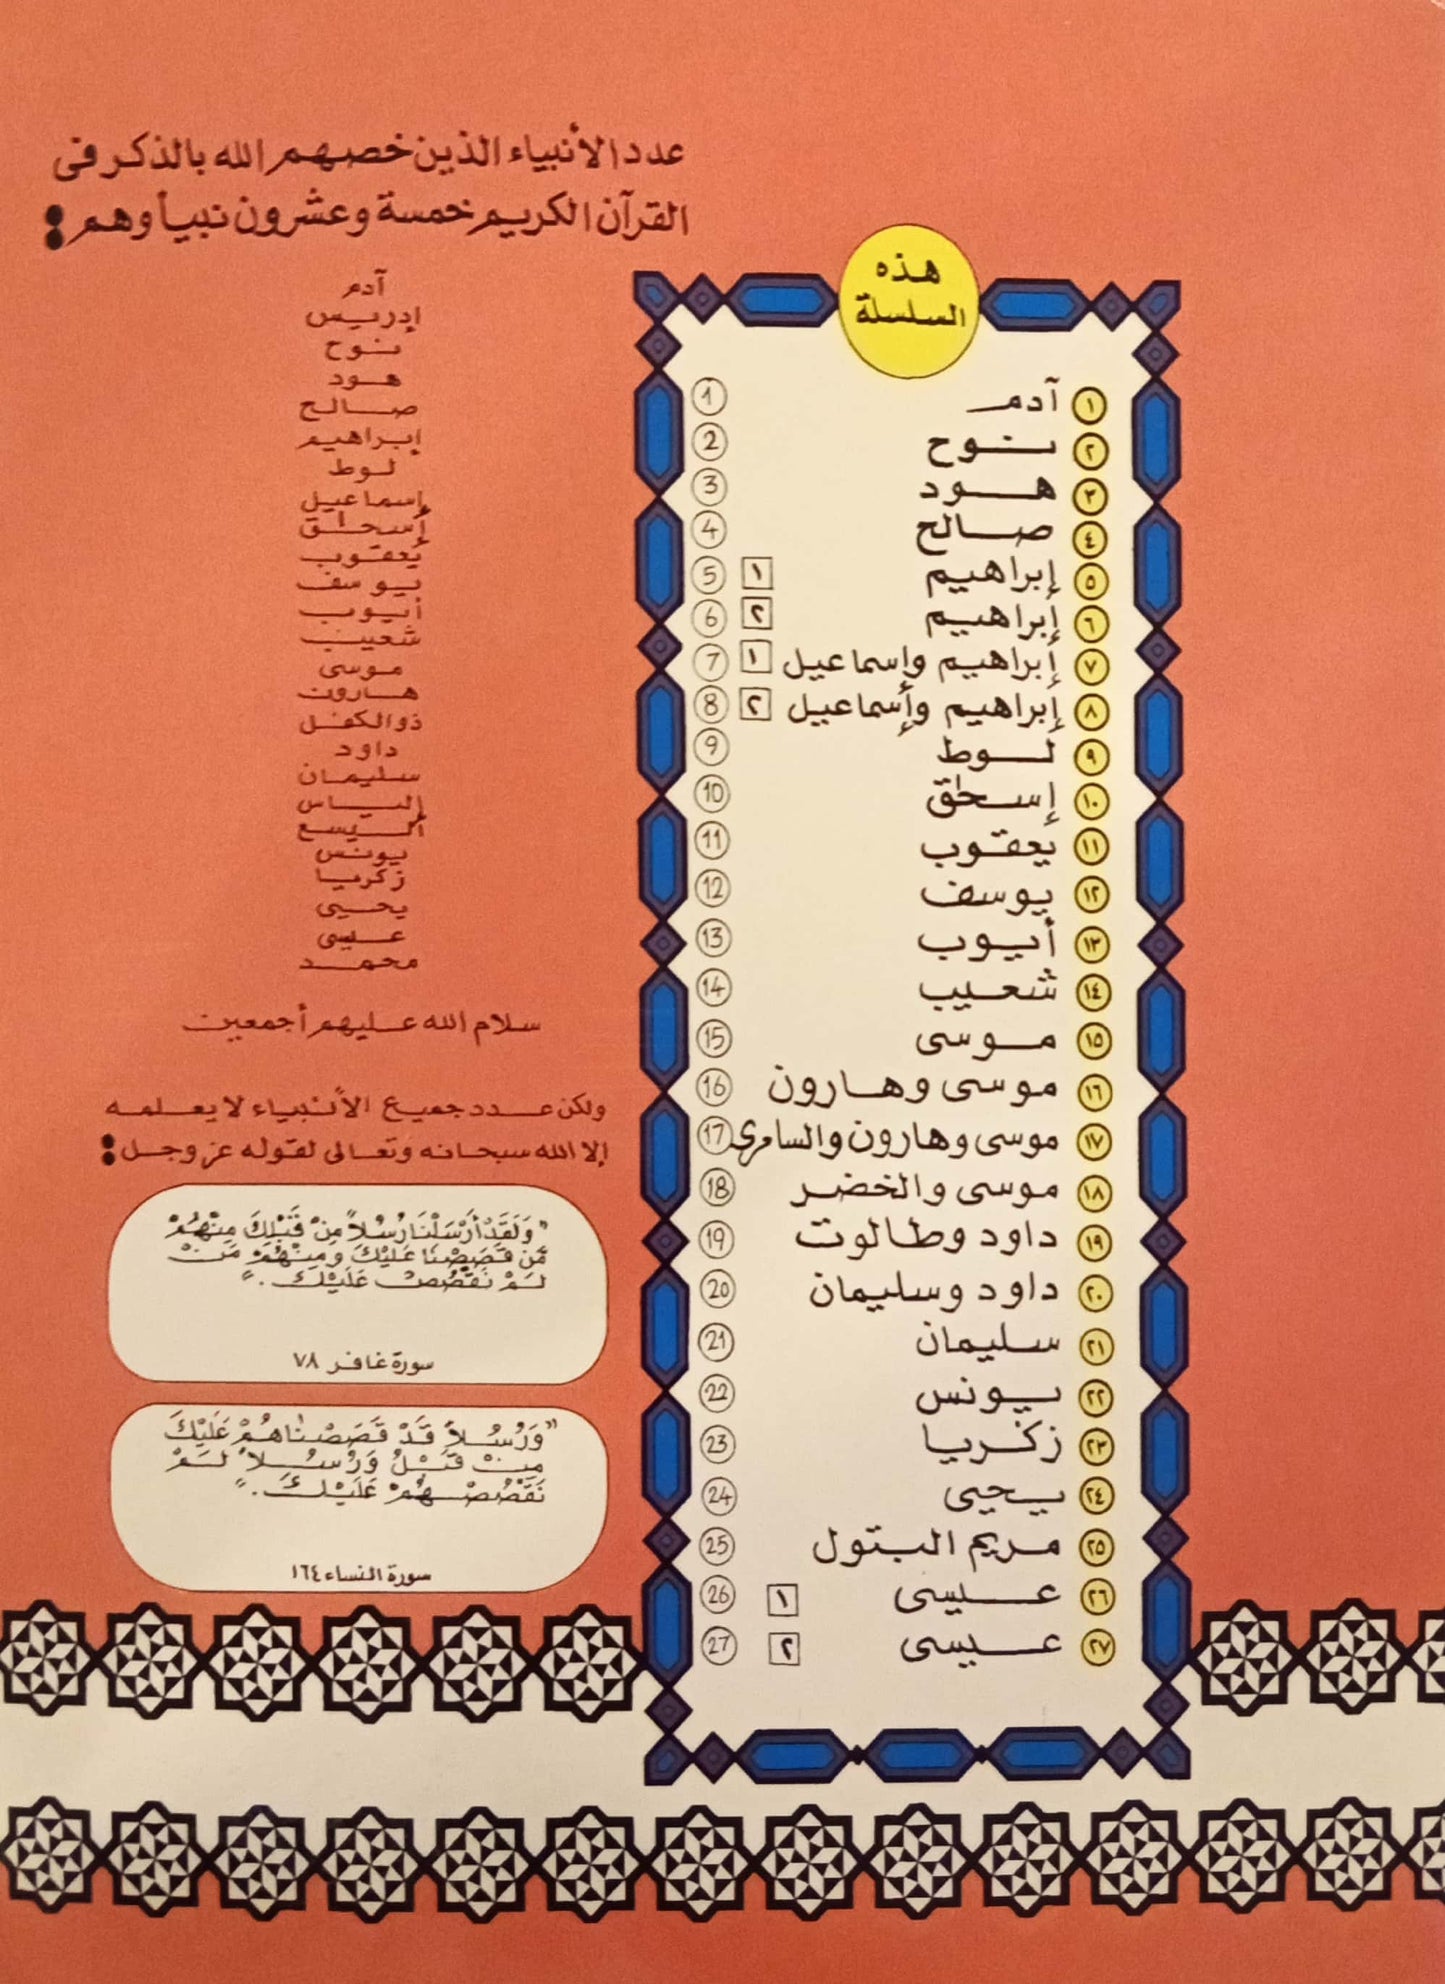 عدد الأنبياء الذين خصهم الله بالذكر فى
القرآن الكريم خمسة وعشرون نبيا وهم :
آدم
إدريس
نوح
هود
صالح
إبراهيم
لوط
إسماعيل
إسحاق
يعقوب
يوسف
أيوب
شعيب
موسى
هارون
ذو الكفل
داود
سليمان
إلياس
أليسع
يونس
زكريا
يحيى
عيسى
محمد
سلام الله عليهم أجمعين
ولكن عدد جميع الأنبياء لا يعلمه
إلا الله سبحانه وتعالى لقوله عز وجل :
"وَلَقَدْ أَرْسَلْنَا رُسُلاً مِنْ قَبْلِكَ مِنْهُمْ
مَّنْ قَصَصْنَا عَلَيْكَ وَمِنْهُمْ مَنْ
لَمْ نَقْصُصْ عَلَيْكَ . "
سورة غافر ٧٨
"وَرُسُلاً قَدْ قَصَصْنَاهُمْ عَلَيْكَ
مِنْ قَبْلُ وَرُسُلاً لَمْ
نَقْصُصْهُمْ عَلَيْكَ . "
سورة النساء ١٦٤
هذه
السلسلة
١ آدم 1
٢ نوح 2
٣ هود 3
٤ صالح 4
٥ إبراهيم ١ 5
٦ إبراهيم ٢ 6
٧ إبراهيم وإسماعيل ١ 7
٨ إبراهيم وأسماعيل ٢ 8
٩ لوط 9
١٠ إسحٰق 10
١١ يعقوب 11
١٢ يوسف 12
١٣ أيوب 13
١٤ شعيب 14
١٥ موسى 15
١٦ موسى وهارون 16
١٧ موسى وهارون والسامرى 17
١٨ موسى والخضر 18
١٩ داود وطالوت 19
٢٠ داود وسليمان 20
٢١ سليمان 21
٢٢ يونس 22
٢٣ زكريا 23
٢٤ يحيى 24
٢٥ مريم البتول 25
٢٦ عيسى ١ 26
٢٧ عيسى ٢ 27